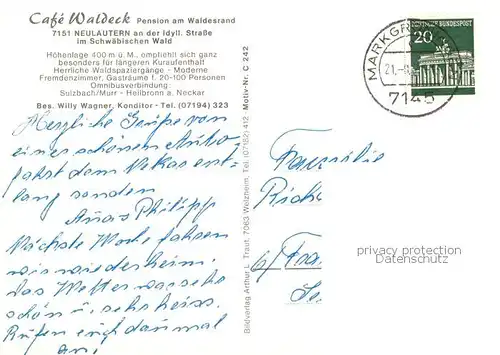 Café Waldeck Pension am Waldesrand
7151 NEULAUTERN an der Idyll. Straße
im Schwäbischen Wald
Höhenlage 400 m ü. M., empfiehlt sich ganz
besonders für längeren Kuraufenthalt
Herrliche Waldspaziergänge - Moderne
Fremdenzimmer, Gasträume f. 20-100 Personen
Omnibusverbindung:
Sulzbach/Murr - Heilbronn a. Neckar
Bes. Willy Wagner, Konditor - Tel. (07194) 323
Herzliche Grüße von
einer schönen Auto
fahrt dem Nekar ent
lang senden
Philipp
Nächste Woche fahren
wir wieder heim,
das Wetter war sehr
schön u. sehr heiss.
Rufen euch dan mal
an.
Bildverlag Arthur L. Traut, 7063 Welzheim, Tel. (07182) 412 Motiv-Nr. C 242
MARKGR
21.
7145
DEUTSCHE BUNDESPOST
20
Familie
privacy protection
Datenschutz